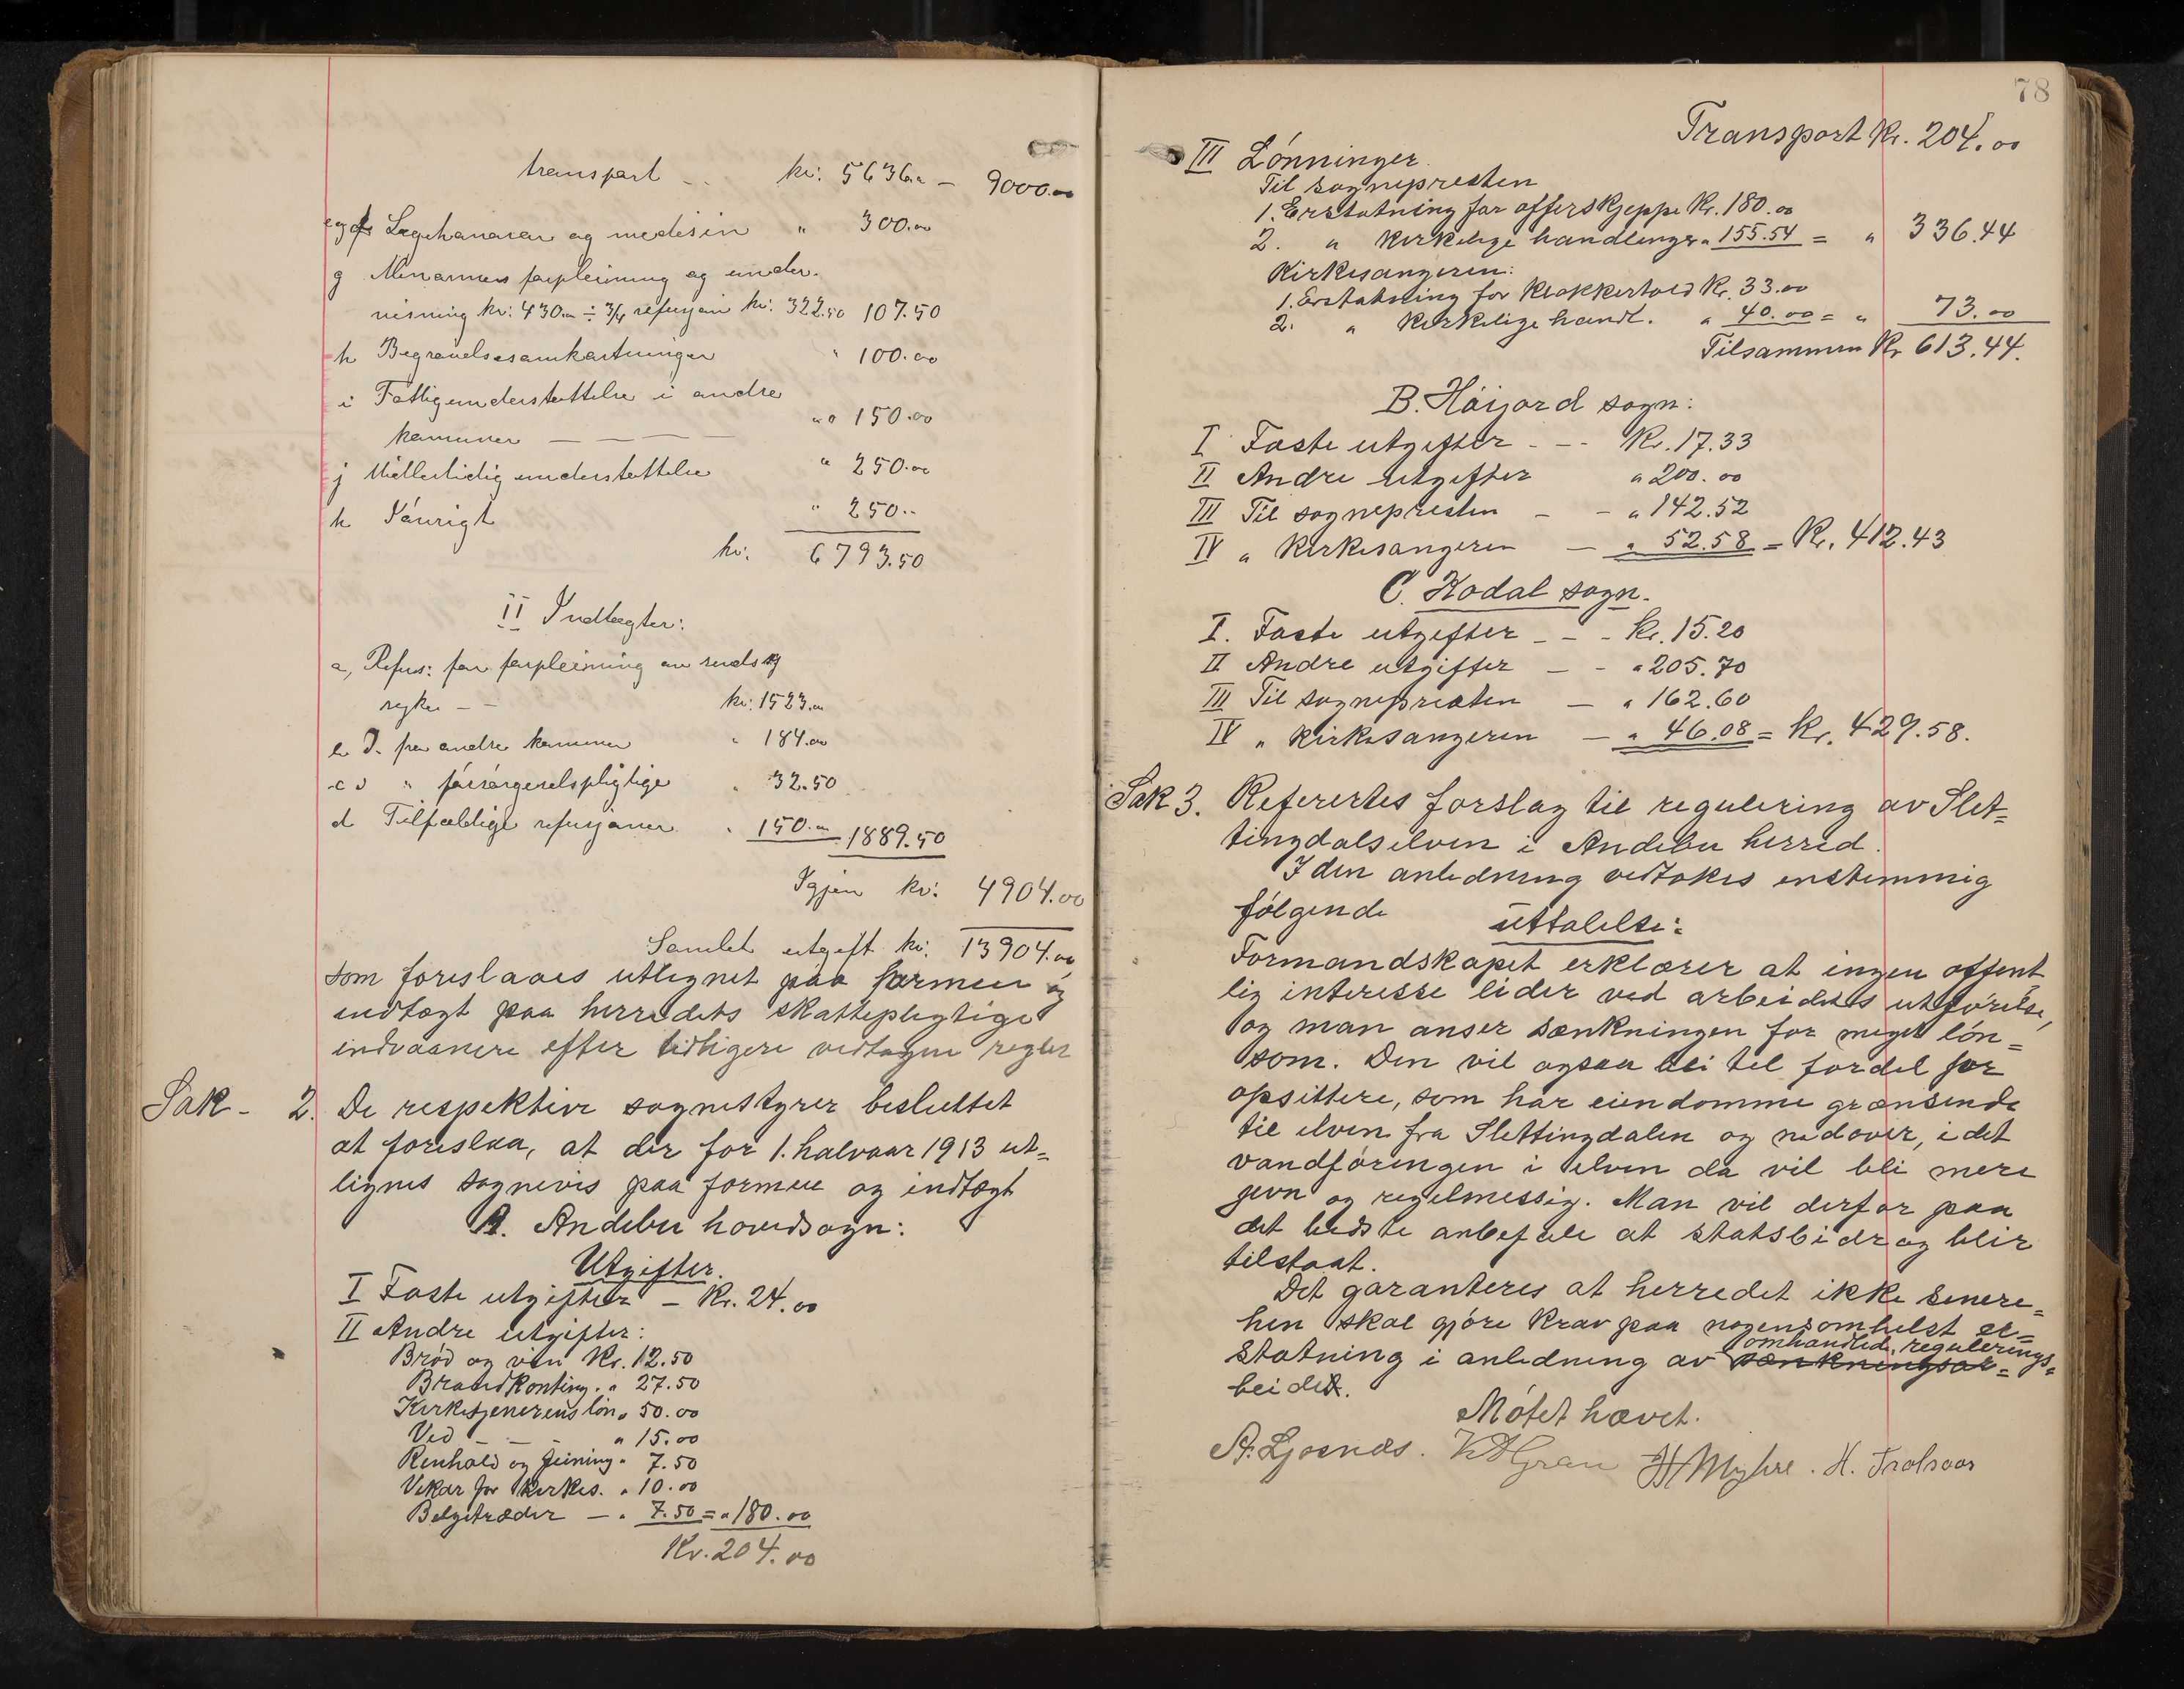 transport kr: 5636.00 — 9000.00
Lægehonorar og medesin " 300.00
g forpleining og under-
visning kr: 430.00 ÷ 3/4 refusjon kr: 322.50 107.50
h Begravelsesomkostninger " 100.00
i Fattigunderstøttelse i andre
komuner — — — " 150.00
j Midlertidig understøttelse " 250.00
k Iøvrigt " 250..
kr. 6793.50
II Indtægter:
a, Refus: for forpleining av sinds
syke — kr: 1523.00
fra andre komuner " 184.00
c " forsørgerelspligtige " 32.50
d Tilfældige refusjoner " 150.00 1889.50
Igjen kr: 4904.00
Samlet utgift kr: 13904.00
som foreslaaes utlignet paa formue og
indtægt paa herredets skattepligtige
indvaanere efter tidligere vedtagne regler
Sak - 2. De respektive sognestyrer besluttet
at foreslaa, at der for 1. halvaar 1913 ut=
lignes sognevis paa formue og indtægt
A. Andebu hovedsogn:
Utgifter.
I Faste utgifter — Kr. 24.00
II Andre utgifter:
Brød og vin Kr. 12.50
Brandkonting. " 27.50
Kirketjenerens løn " 50.00
Ved — — " 15.00
Renhold og feining " 7.50
Vikar for kirkes. " 10.00
Belgetræder — " 7.50 = " 180.00
Kr. 204.00
78
Transport Kr. 204.00
III Lønninger.
Til sognepresten
1. Erstatning for offerskjeppe Kr. 180.00
2. " kirkelige handlinger " 155.54 = " 336.44
Kirkesangeren:
1. Erstatning for klokkertold Kr. 33.00
2. " kirkelige handl. " 40.00 = " 73.00
Tilsammen Kr 613.44.
B. Høijord sogn:
I Faste utgifter - - - Kr. 17.33
II Andre utgifter " 200.00
III Til sognepresten — - " 142.52
IV " Kirkesangeren — " 52.58 = Kr. 412.43
C. Kodal sogn.
I. Faste utgifter - - - Kr. 15.20
II Andre utgifter — - " 205.70
III Til sognepresten — " 162.60
IV " Kirkesangeren — " 46.08 = Kr. 429.58.
Sak 3. Referertes forslag til regulering av Slet=
tingdalselven i Andebu herred.
I den anledning vedtokes enstemmig
følgende uttalelse:
Formandskapet erklærer at ingen offent
lig interesse lider ved arbeidets utførelse,
og man anser sænkningen for meget løn=
som. Den vil ogsaa bli til fordel for
opsittere, som har eiendomme grænsende
til elven fra Slettingdalen og nedover, idet
vandføringen i elven da vil bli mere
jevn og regelmessig. Man vil derfor paa
det bedste anbefale at statsbidrag blir
tilstaat.
Det garanteres at herredet ikke senere=
hen skal gjøre krav paa nogensomhelst er=
omhandlede regulerings=
statning i anledning av sænkningsar=
beidet.
Møtet hævet.
A. Gjerstad. H Myhre. H. Trolsaas